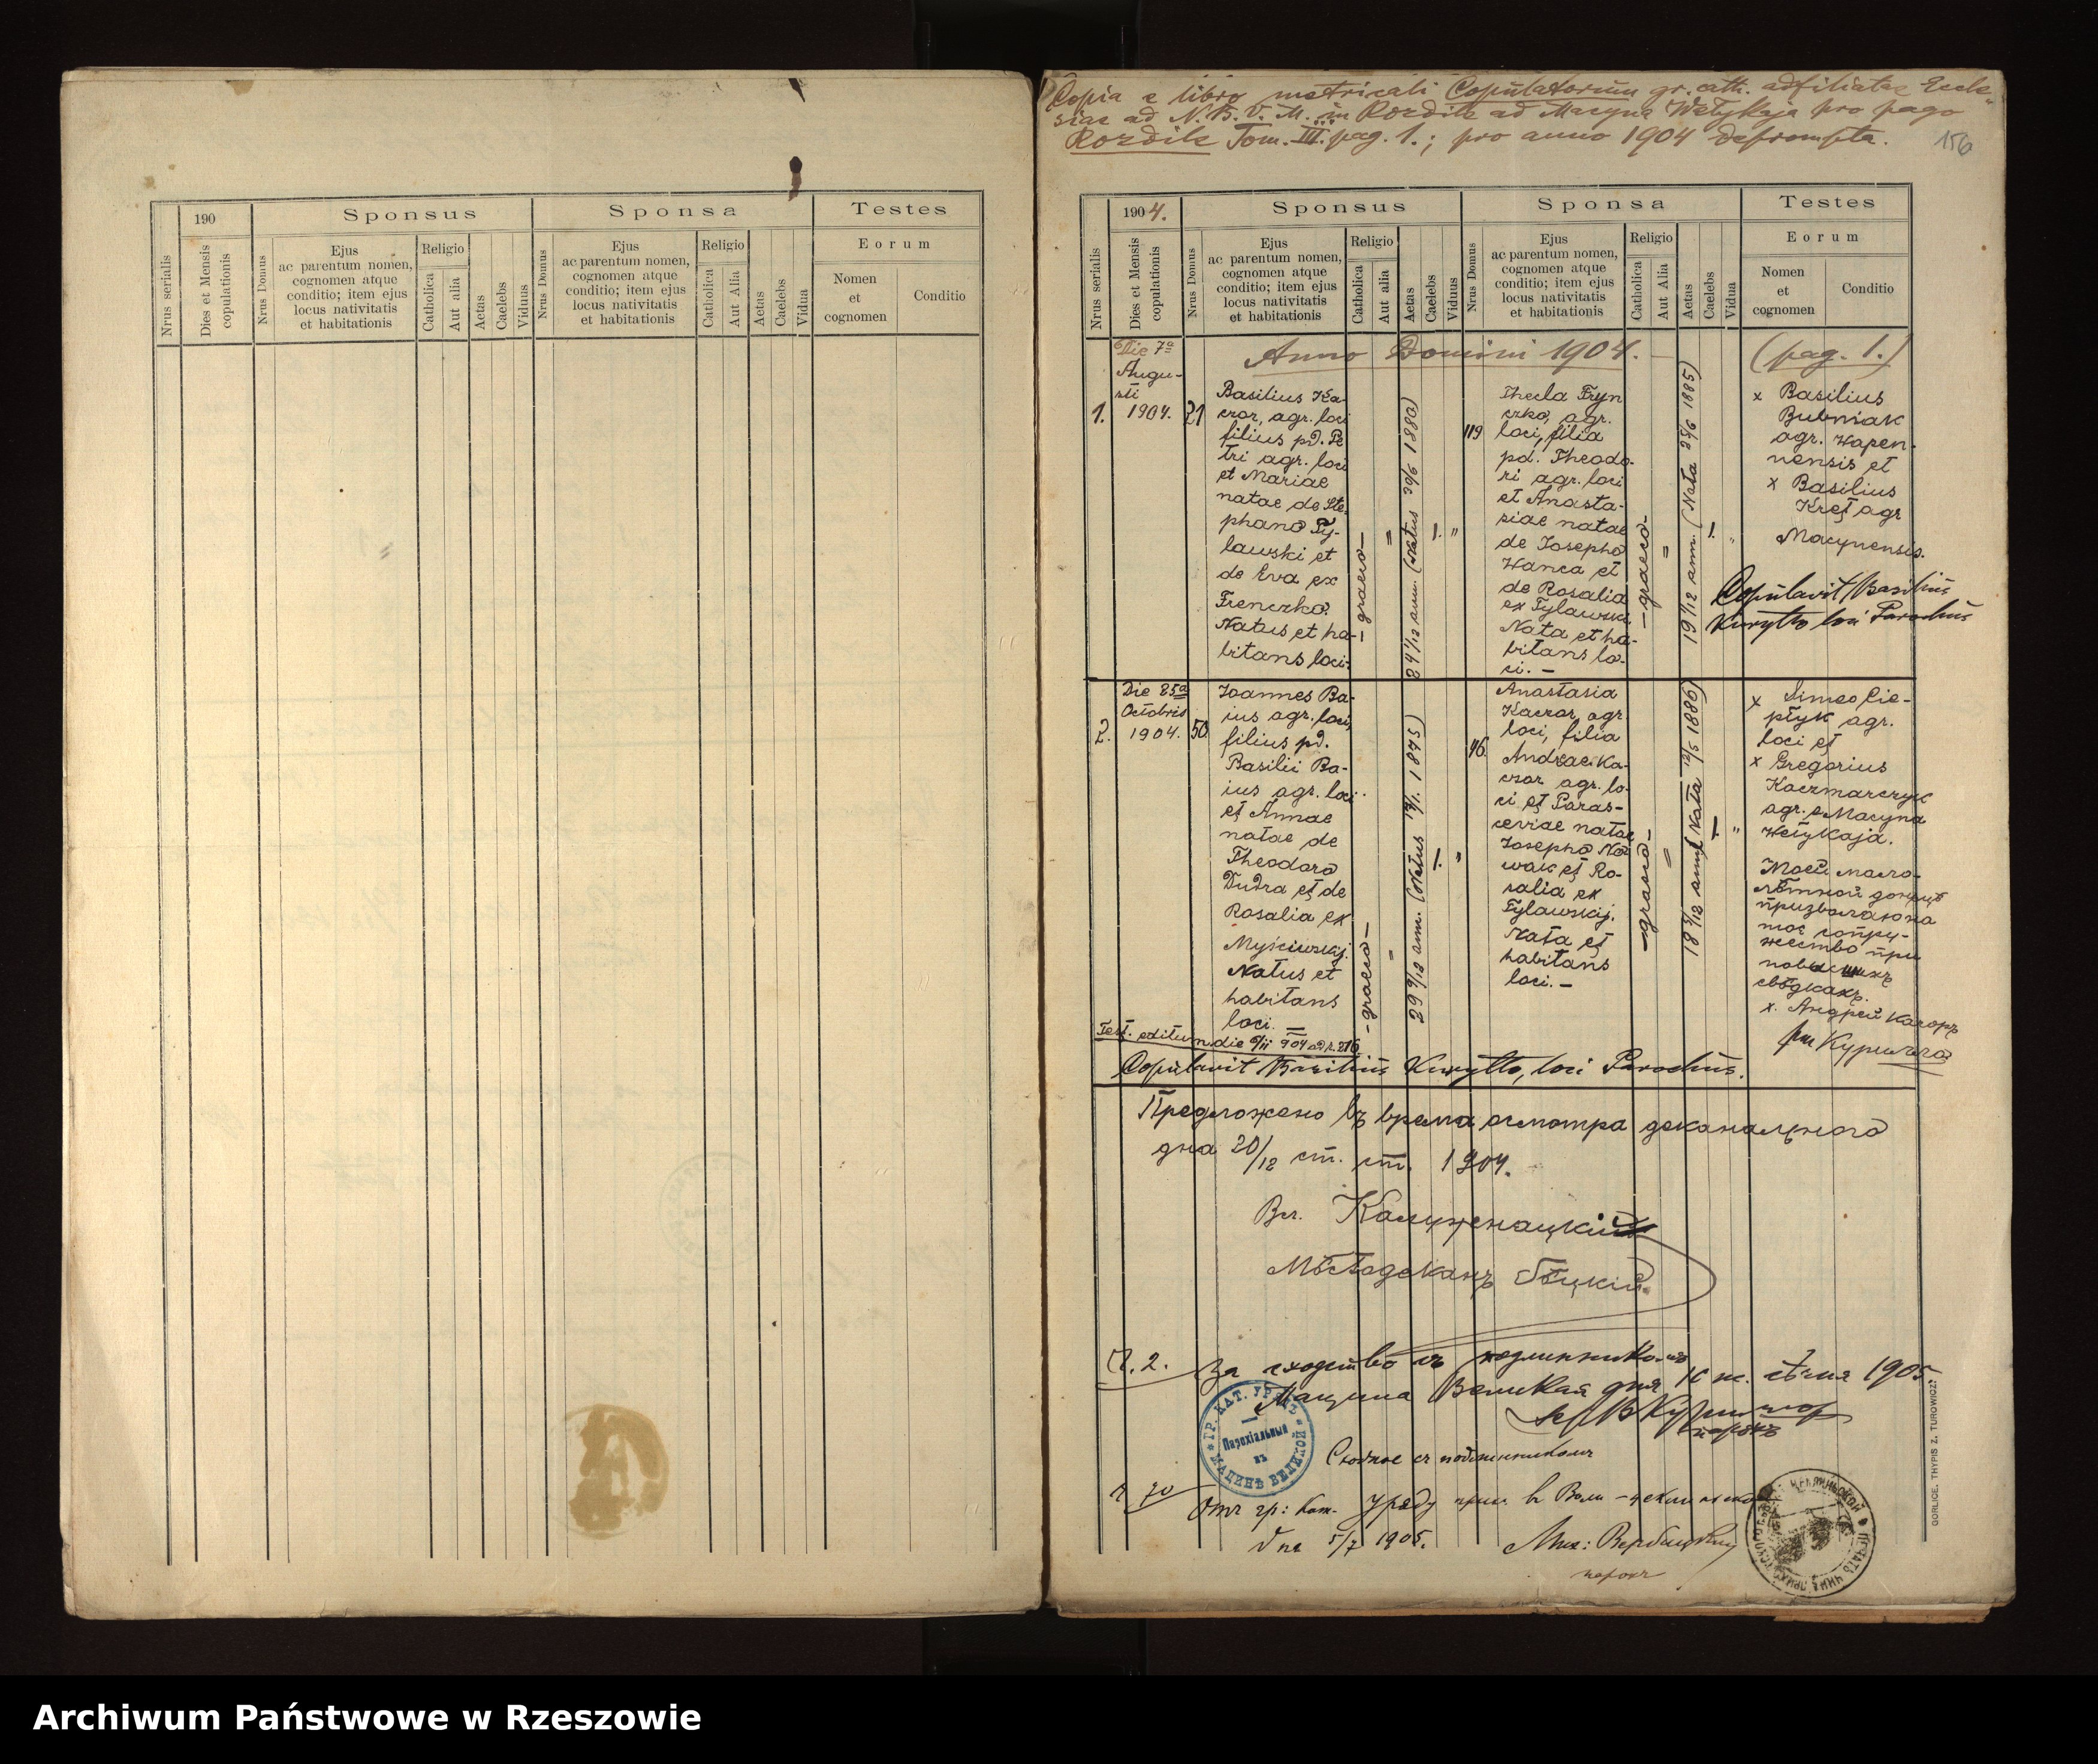 190
Sponsus
Sponsa
Testes
Nrus serialis
Dies et Mensis
copulationis
Nrus Domus
Ejus
ac parentum nomen,
cognomen atque
conditio; item ejus
locus nativitatis
et habitationis
Religio
Catholica
Aut alia
Aetas
Caelebs
Viduus
Nrus Domus
Ejus
ac parentum nomen,
cognomen atque
conditio; item ejus
locus nativitatis
et habitationis
Religio
Catholica
Aut Alia
Aetas
Caelebs
Vidua
Eorum
Nomen
et
cognomen
Conditio
Copia e libro metricali Copulatorum gr. cath. adfiliatae Eccle-
siae ad N. B. V. M. in Rozdile ad Macyna Wełykaja pro pago
Rozdile Tom. III. pag. 1.; pro anno 1904 deprompta.
156
1904.
Sponsus
Sponsa
Testes
Nrus serialis
Dies et Mensis
copulationis
Nrus Domus
Ejus
ac parentum nomen,
cognomen atque
conditio; item ejus
locus nativitatis
et habitationis
Religio
Catholica
Aut alia
Aetas
Caelebs
Viduus
Nrus Domus
Ejus
ac parentum nomen,
cognomen atque
conditio; item ejus
locus nativitatis
et habitationis
Religio
Catholica
Aut Alia
Aetas
Caelebs
Vidua
Eorum
Nomen
et
cognomen
Conditio
Anno Domini 1904.
(pag. 1.)
1.
Die 7a
Augu-
sti
1904.
21
Basilius Ka-
czor, agr. loci
filius pd. Pe
tri agr. loci
et Mariae
natae de Ste-
phano Ty-
lawski et
de Eva ex
Frenczko.
Natus et ha-
bitans loci.
graeco
24 1/12 ann. (Natus 30/6 1880)
1.
119
Thecla Fryn
czko, agr.
loci, filia
pd. Theodo-
ri agr. loci
et Anasta-
siae natae
de Josepho
Wanca et
de Rosalia
ex Tylawska.
Nata et ha-
bitans lo-
ci. —
graeco
19 1/12 ann. (Nata 1885)
1.
x Basilius
Bubniak
agr. Wapen-
nensis et
x Basilius
Kret agr
Macynensis.
Copulavit Basilius
Kuryłło loci Parochus
2.
Die 25a
Octobris
1904.
50
Joannes Ba-
ius agr. loci,
filius pd.
Basilii Ba-
ius agr. loci
et Annae
natae de
Theodoro
Dudra et de
Rosalia ex
Natus et
habitans
loci. —
graeco
29 9/12 ann. (Natus 1875)
1.
46.
Anastasia
Kaczor agr.
loci, filia
Andreae Ka-
czor agr. lo-
ci et Paras-
ceviae natae
Josepho No-
wak et Ro-
salia ex
Tylawskij.
Nata et
habitans
loci. —
graeco
18 5/12 ann. (Nata 12/5 1886)
1
x Simeo Cie-
płyk agr.
loci et
x Gregorius
Kaczmarczyk
agr. e Macyna
Wełykaja.
Моей мало-
лѣтной донцѣ
призваляю на
тое супру-
жество при
повысшихъ
свѣдкахъ.
x. Андрей Качоръ
Курилло
Test. editum die 9/11 904 ad N. 216
Copulavit Basilius Kuryłło, loci Parochus.
Предложено въ время осмотра деканального
дня 20/12 ст. ст. 1904.
Вл. Калужнацкій
Мѣстодеканъ Бѣцкій.
Ч. 2.
За сходство съ подлинникомъ
Мацина Великая дня 16 н. 1905.
ГР. КАТ. УРЯДЪ
Парохіальный
въ
МАЦИНѢ ВЕЛИКОЙ
Сходное съ подлинникомъ
Ч 70
Отъ гр: кат. Уряду
дня 5/7 1905.
Мих: Вербицкій
парохъ
GORLICE. THYPIS Z. TUROWICZ.
Archiwum Państwowe w Rzeszowie